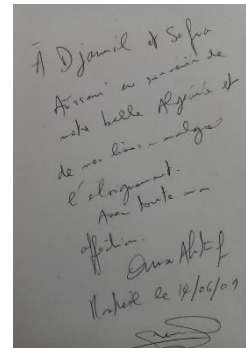 À Djamil et Safia
Aïssani en souvenir de
notre belle Algérie et
de nos liens malgré
l'éloignement.
Avec toute mon
affection.
le 14/06/09